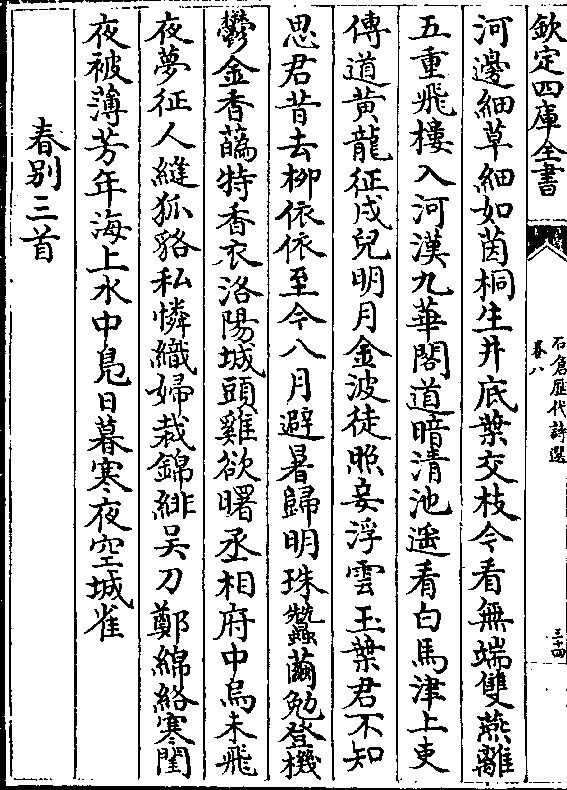 欽定四庫全書
石倉歷代詩選
卷八
三十四
河邊細草細如茵桐生井底葉交枝今看無端雙燕離
五重飛樓入河漢九華閣道暗清池遥看白馬津上吏
傳道黄龍征戍兒明月金波徒照妾浮雲玉葉君不知
思君昔去柳依依至今八月避暑歸明珠蠶繭勉登機
鬱金香蘤特香衣洛陽城頭雞欲曙丞相府中烏未飛
夜夢征人縫狐貉私憐織婦裁錦緋吴刀鄭綿絡寒閨
夜被薄芳年海上水中鳬日暮寒夜空城雀
春别三首